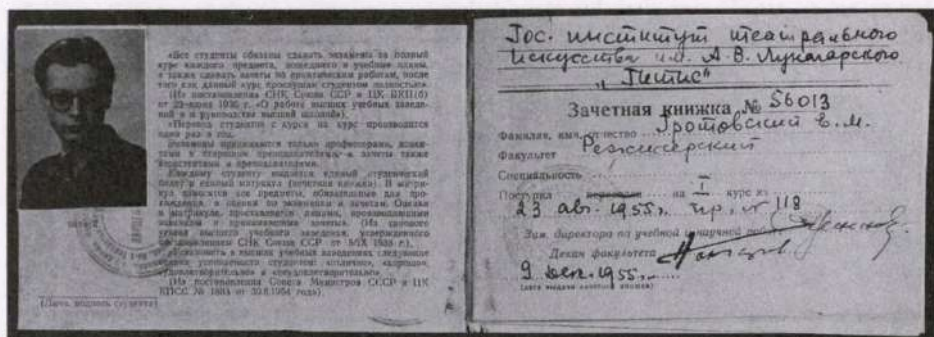 «Все студенты обязаны сдавать экзамены за полный
курс каждого предмета, вошедшего в учебные планы,
а также сдавать зачеты по практическим работам, после
того как данный курс прослушан студентом полностью».
(Из постановления СНК Союза ССР и ЦК ВКП(б)
от 23 июня 1936 г. «О работе высших учебных заведе-
ний и о руководстве высшей школой»).
«Перевод студентов с курса на курс производится
один раз в год.
Экзамены принимаются только профессорами, доцен-
тами и старшими преподавателями, а зачеты также
ассистентами и преподавателями.
Каждому студенту выдается единый студенческий
билет и единый матрикул (зачетная книжка). В матри-
кул вносятся все предметы, обязательные для про-
хождения, и оценки по экзаменам и зачетам. Оценки
в матрикуле проставляются лицами, принимающими
экзамены и практические зачеты». (Из типового
устава высшего учебного заведения, утвержденного
постановлением СНК Союза ССР от 5/IX 1938 г.).
«Установить в высших учебных заведениях следующие
оценки успеваемости студентов: «отлично», «хорошо»,
«удовлетворительно» и «неудовлетворительно».
(Из постановления Совета Министров СССР и ЦК
КПСС № 1863 от 30.8.1954 года).
(Личн. подпись студента)
Гос. институт театрального
искусства им. А. В. Луначарского
"Гитис"
Зачетная книжка № 56013
Фамилия, имя, отчество Гротовский Е. М.
Факультет Режиссерский
Специальность
Поступил переведен на I курс
23 авг. 1955г. пр. № 118
Зам. директора по учебной и научной работе
Декан факультета
9 дек. 1955г.
(дата выдачи зачетной книжки)